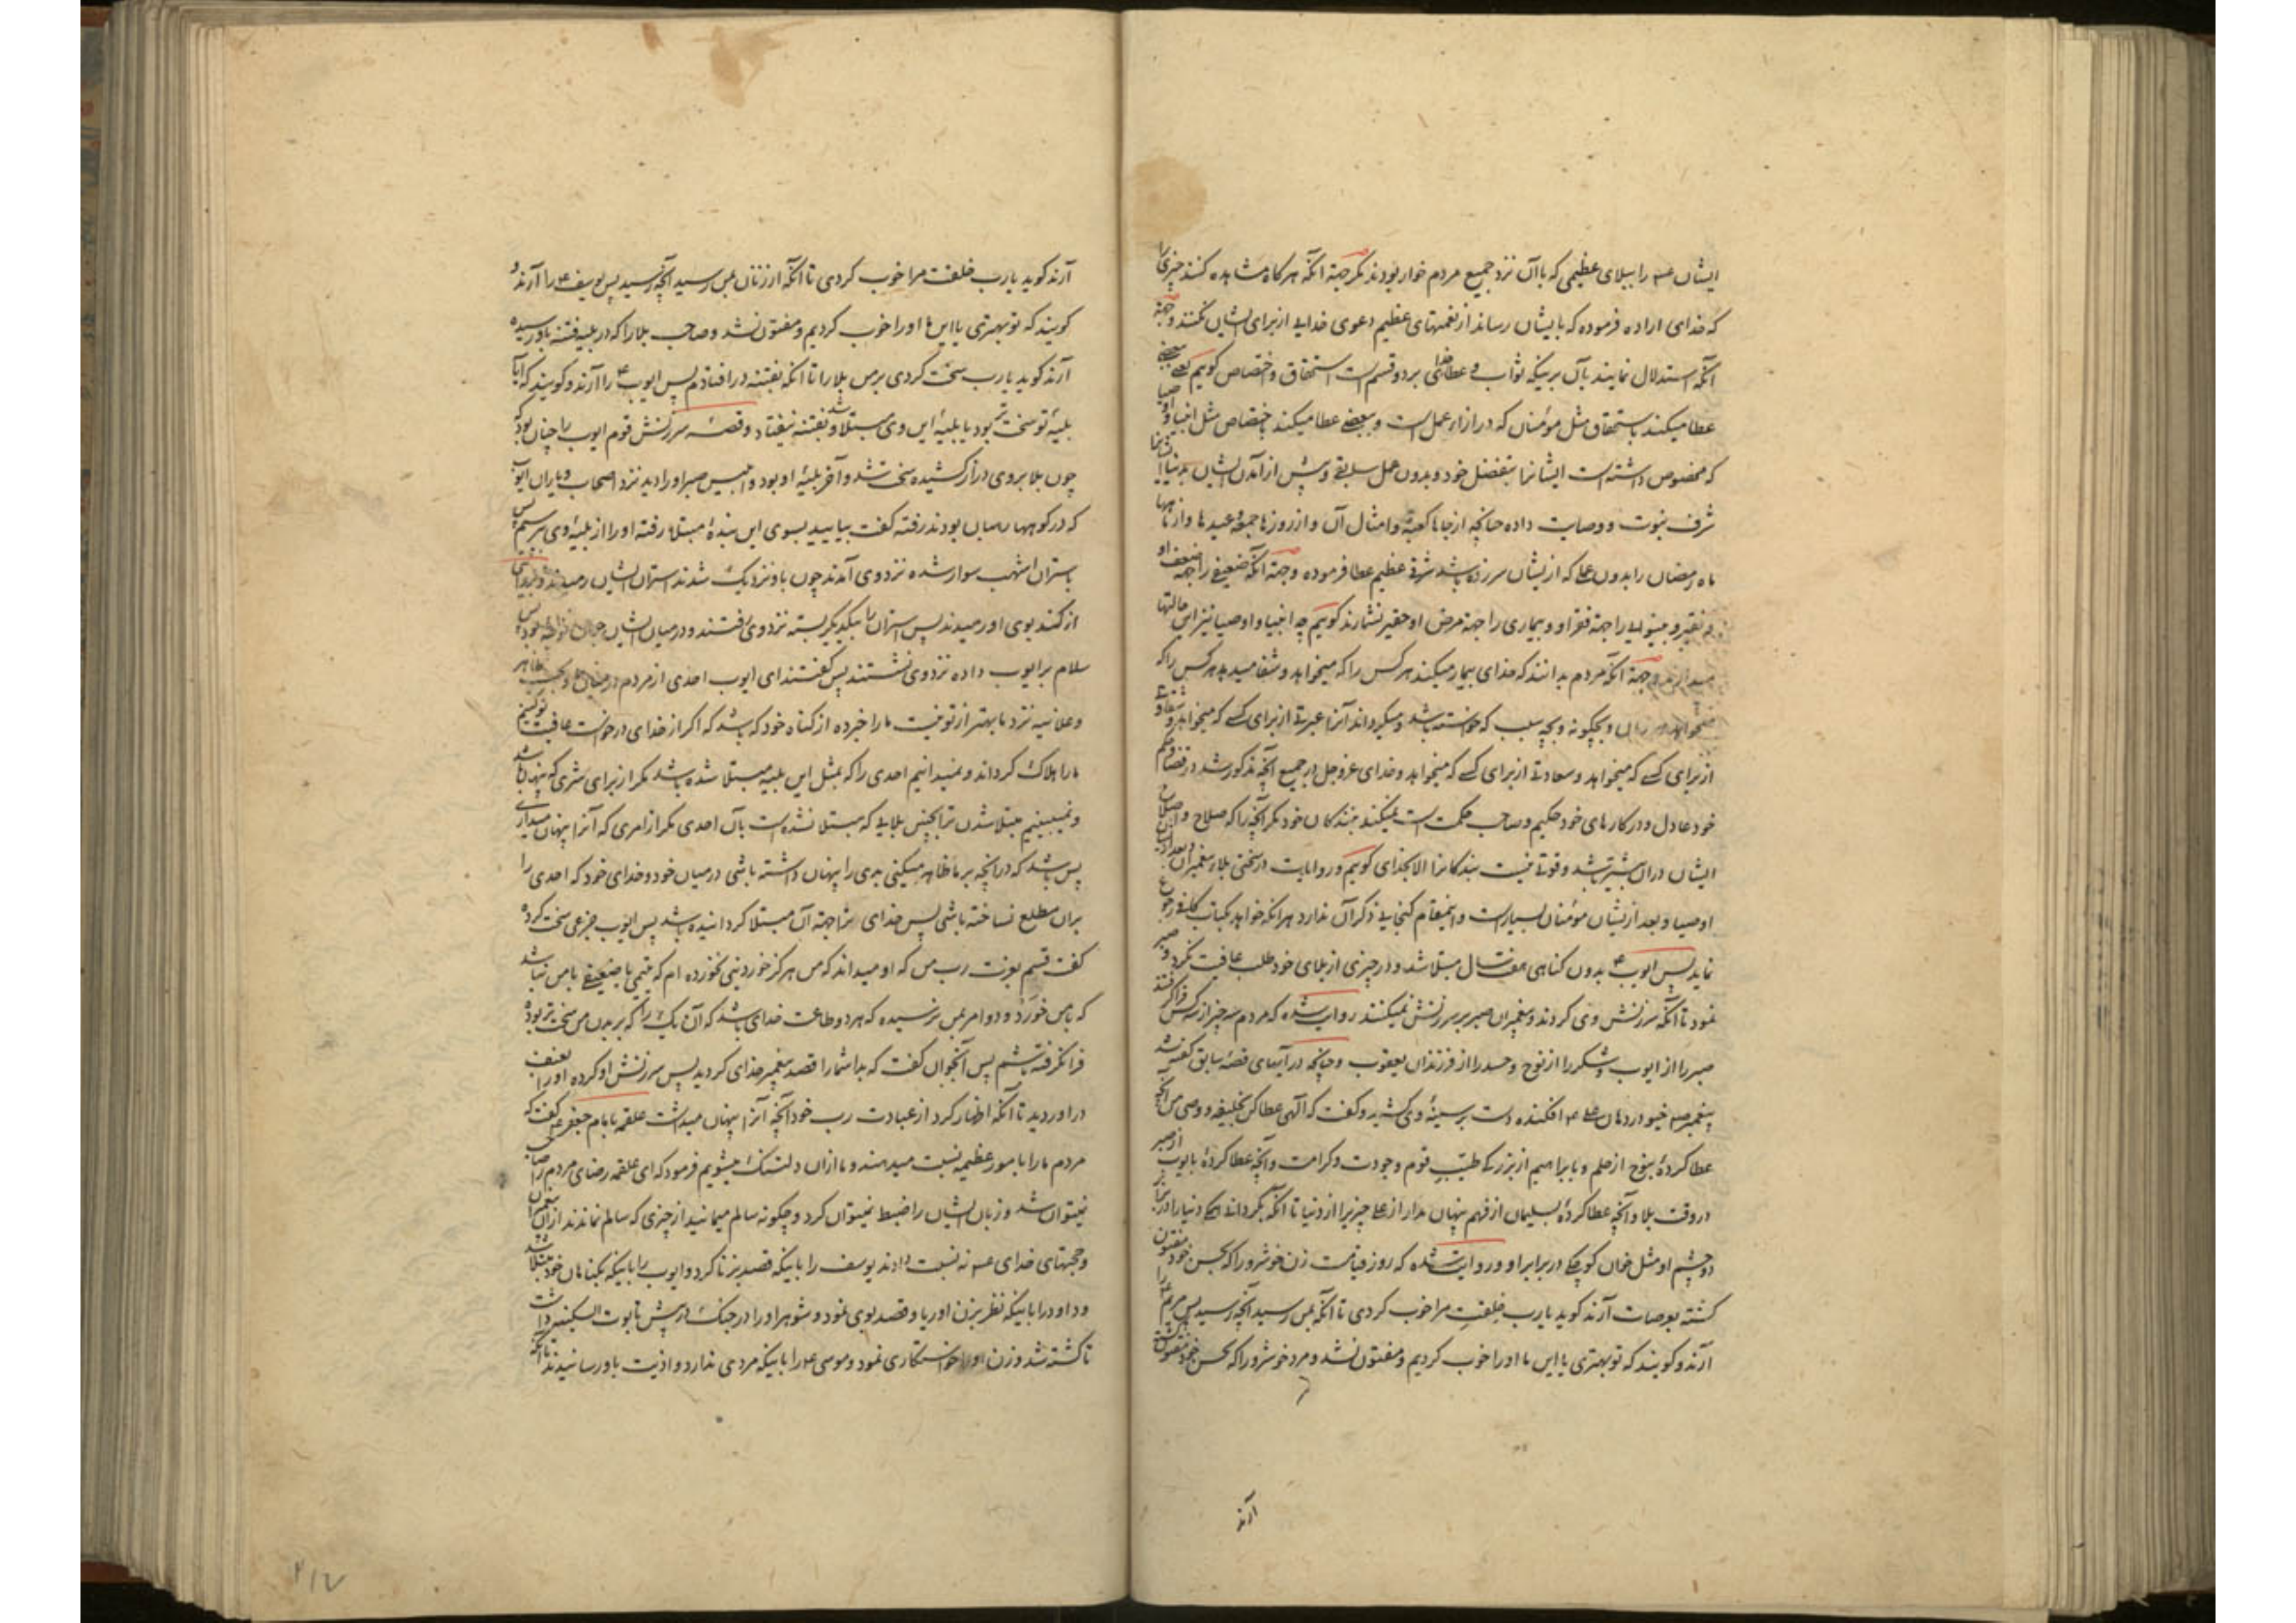 ایشان ع را ببلای عظیمی که باآن نزد جمیع مردم خوار بودند مکر جهة آنکه هرکاه مشاهده کنند چیزی را
که خدای اراده فرموده که بایشان رساند از نعمتهای عظیم دعوی خدایی از برای ایشان نکنند و جهة
آنکه استدلال نمایند بآن بر اینکه ثواب و عطا خدا بر دو قسم است استحقاق و اختصاص کویم یعنی بعضی
عطا میکند باستحقاق مثل مؤمنان که در ازاء عمل است و ببعضی عطا میکند باختصاص مثل انبیا و اوصیا
که مخصوص داشته است ایشانرا بتفضل خود و بدون عمل سابقی و پیش از آمدن ایشان بدنیا ایشانرا
شرف نبوت و وصایت داده چنانچه از جاها کعبه و امثال آن و از روزها جمعه و عیدها و از ماهها
ماه رمضان را بدون عملی که از یشان سرزده باشد شرفی عظیم عطا فرموده و جهة آنکه ضعیفی را جهة ضعف او
و فقیر و بینوایی را جهة فقر او و بیماری را جهة مرض او حقیر نشمارند کویم چه انبیا و اوصیا نیز این حالتها
میدارند و جهة آنکه مردم بدانند که خدای بیمار میکند هرکس را که میخواهد و شفا میدهد هرکس را که
میخواهد هر زمان و بچکونه و بچه سبب که خواسته باشد و میکرداند آنرا عبرتی از برای کسی که میخواهد و شقاوتی
از برای کسی که میخواهد و سعادتی از برای کسی که میخواهد و خدای عزوجل در جمیع آنچه مذکور شد در قضا و حکم
خود عادل و در کارهای خود حکیم و صاحب حکمت است نمیکند ببندکان خود مکر آنچه را که صلاح و اصلاح
ایشان در آن بیشتر باشد و قوتی نیست بندکانرا الا بخدای کویم و روایات در سختی بلاء پیغمبران و بعد از ایشان
اوصیا و بعد از یشان مؤمنان بسیار است و این مقام کنجایی ذکر آن ندارد هر آنکه خواهد بکتاب کافی رجوع
نماید پس ایوب ع بدون کناهی هفت سال مبتلا شد و در چیزی از بلای خود طلب عافیت نکرد و صبر
نمود تا آنکه سرزنش وی کردند و پیغمبران صبر بر سرزنش نمیکنند روایت شده که مردم سه چیز از سه کس فرا کرفتند
صبر را از ایوب و شکر را از نوح و حسد را از فرزندان یعقوب و چنانچه در آیتهای قصهٔ سابق کفته شد
پیغمبر ص خیو در دهان علی ع افکنده دست بر سینهٔ وی کشیده و کفت که آلهی عطا کن بخلیفه و وصی من آنچه
عطا کردهٔ بنوح از حلم و بابراهیم از بزرکی طیّب قوم و جودت و کرامت و آنچه عطا کردهٔ بایوب از صبر
در وقت بلا و آنچه عطا کردهٔ بسلیمان از فهم پنهان مدار از علی چیزیرا از دنیا تا آنکه بکردانی همکی دنیا را در نزد
دو چشم او مثل خوان کوچکی در برابر او و روایت شده که روز قیامت زن خوشرو را که بحسن خود مفتون
کشته بعرصات آرند کوید یارب خلقت مرا خوب کردی تا آنکه بمن رسید آنچه رسید پس مریم ع را
آرند و کویند که تو بهتری یا این ما او را خوب کردیم و مفتون نشد و مرد خوشرو را که بحسن خود مفتون شده
آرند
آرند کوید یارب خلقت مرا خوب کردی تا آنکه از زنان بمن رسید آنچه رسید پس یوسف ع را آرند و
کویند که تو بهتری یا این ما او را خوب کردیم و مفتون نشد و صاحب بلا را که در بلیه فتنه باو رسیده
آرند کوید یارب سخت کردی بر من بلا را تا آنکه بفتنه در افتادم پس ایوب ع را آرند و کویند که آیا
بلیهٔ تو سخت تر بود یا بلیهٔ این وی مبتلا شد و بفتنه نیفتاد و قصهٔ سرزنش قوم ایوب را چنان بود که
چون بلا بروی دراز کشیده سخت شد و آخر بلیهٔ او بود و ابلیس صبر او را دید نزد اصحاب و یاران ایوب
که در کوهها رهبان بودند رفته کفت بیایید بسوی این بندهٔ مبتلا رفته او را از بلیهٔ وی بپرسیم پس
باستران اشهب سوار شده نزد وی آمدند چون باو نزدیک شدند استران ایشان رمیدند
از کند بوی او رمیدند پس استران را بیکدیکر بسته نزد وی رفتند و در میان ایشان جوانی نوخاسته بود پس
سلام بر ایوب داده نزد وی نشستند پس کفتند ای ایوب احدی از مردم در ظاهر
و علانیه نزد ما بهتر از تو نیست ما را خبرده از کناه خود که باشد که اکر از خدای درخواست عافیت تو کنیم
ما را هلاک کرداند و نمیدانیم احدی را که بمثل این بلیه مبتلا شده باشد مکر از برای شری که پنهان باشد
و نمیبینیم مبتلا شدن ترا بچنین بلایی که مبتلا نشده است بآن احدی مکر از امری که آنرا پنهان میداری
پس باشد که در آنچه بر ما ظاهر میکنی بدی را پنهان داشته باشی در میان خود و خدای خود که احدی را
بران مطلع نساخته باشی پس خدای ترا جهة آن مبتلا کردانیده باشد پس ایوب جزعی سخت کرده
کفت قسم بعزت رب من که او میداند که من هرکز خوردنیی نخورده ام که یتیمی یا ضعیفی با من نباشد
که با من خورَد و دو امر بمن نرسیده که هر دو طاعت خدای باشد که آن یک را که بر بدن من سخت تر بوده
فرا نکرفته باشم پس آن جوان کفت که بدا شما را قصد پیغمبر خدای کردید پس سرزنش او کرده او را بعنف
در آوردید تا آنکه اظهار کرد از عبادت رب خود آنچه آنرا پنهان میداشت علقمه بامام جعفر ع کفت که
مردم ما را بامور عظیمه نسبت میدهند و ما ازان دلتنک میشویم فرمود که ای علقمه رضای مردم را صاحب
نمیتوان شد و زبان ایشان را ضبط نمیتوان کرد و چکونه سالم میمانید از چیزی که سالم نماندند ازان پیغمبران
و حجتهای خدای ع نه نسبت دادند یوسف را باینکه قصد بزنا کرد و ایوب را باینکه بکناهان خود مبتلا شد
و داود را باینکه نظر بزن اوریا و قصد بوی نمود و شوهر او را در جنک در پیش تابوت السکینه داشت
تا کشته شد و زن او را خواستکاری نمود و موسی ع را باینکه مردمی ندارد و اذیت باو رسانیدند تا آنکه
۲۱۷